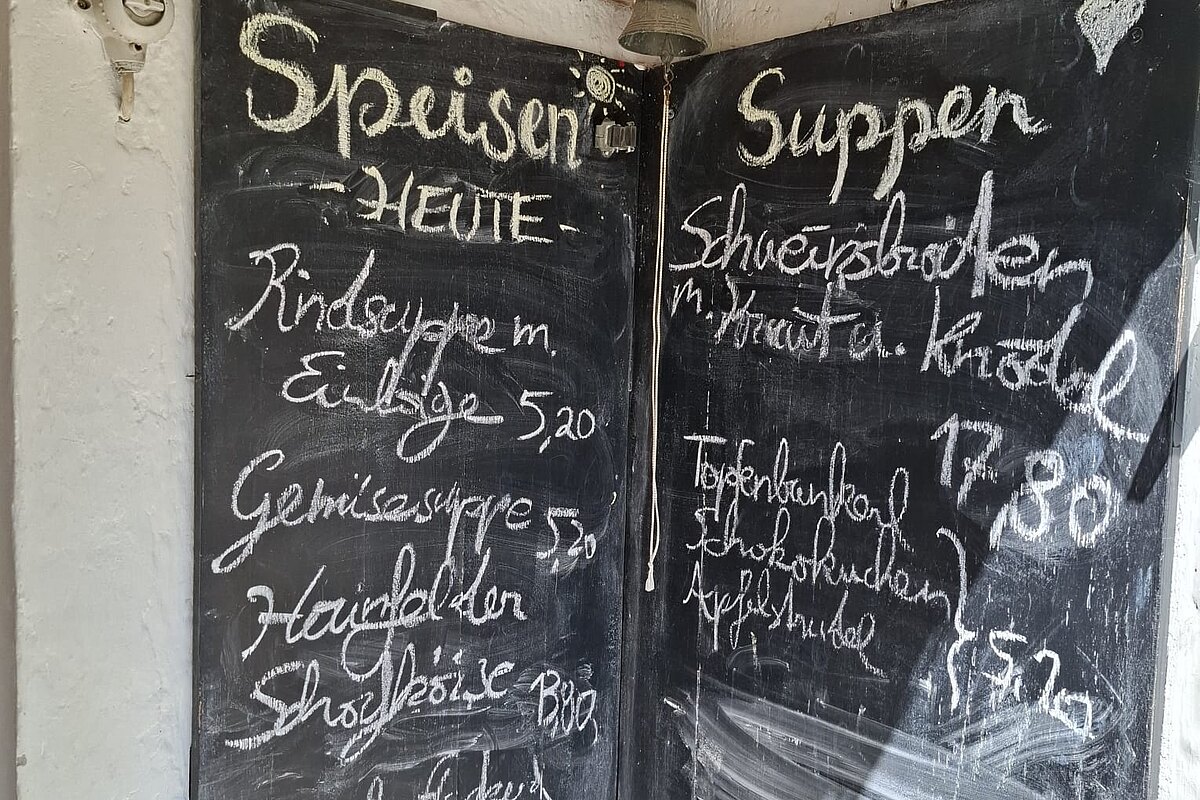 Speisen
-HEUTE-
Rindsuppe m.
Einlage 5,20
Gemüsesuppe 5,20
Hainfelder
Schafkäse 13,80
Suppen
Schweinsbraten
m. Kraut u. Knödel
17,80
Topfen
Schokokuchen
Apfelstrudel
} 5,20